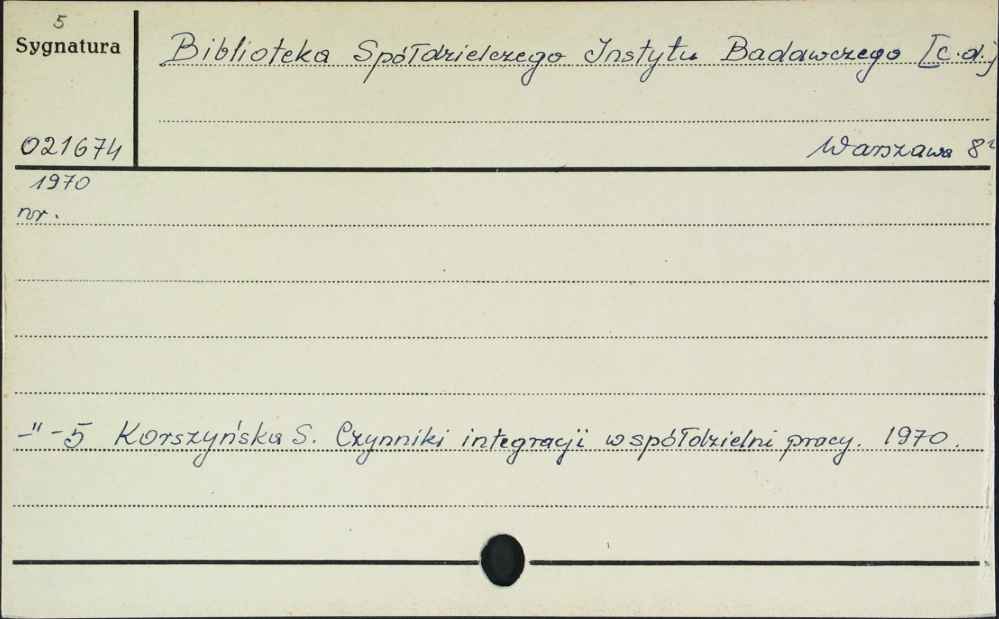 5
Sygnatura
Biblioteka Spółdzielczego Instytutu Badawczego [c.d.]
021674
Warszawa 8°
1970
nr.
-"-5 Korszyńska S. Czynniki integracji w spółdzielni pracy. 1970.